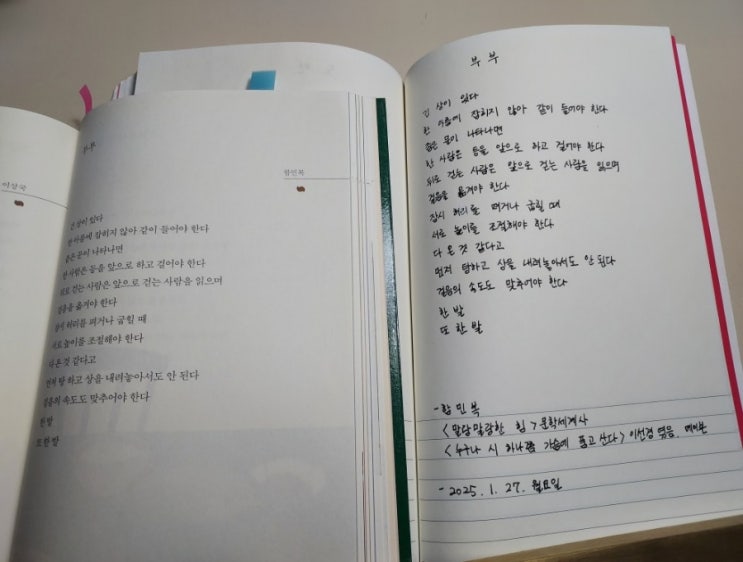 이상국
부부
함민복
긴 상이 있다
한 아름에 잡히지 않아 같이 들어야 한다
좁은 문이 나타나면
한 사람은 등을 앞으로 하고 걸어야 한다
뒤로 걷는 사람은 앞으로 걷는 사람을 읽으며
걸음을 옮겨야 한다
잠시 허리를 펴거나 굽힐 때
서로 높이를 조절해야 한다
다 온 것 같다고
먼저 탕 하고 상을 내려놓아서도 안 된다
걸음의 속도도 맞추어야 한다
한 발
또 한 발
부부
긴 상이 있다
한 아름에 잡히지 않아 같이 들어야 한다
좁은 문이 나타나면
한 사람은 등을 앞으로 하고 걸어야 한다
뒤로 걷는 사람은 앞으로 걷는 사람을 읽으며
걸음을 옮겨야 한다
잠시 허리를 펴거나 굽힐 때
서로 높이를 조절해야 한다
다 온 것 같다고
먼저 탕하고 상을 내려놓아서도 안 된다
걸음의 속도도 맞추어야 한다
한 발
또 한 발
- 함민복
<말랑말랑한 힘> 문학세계사
<누구나 시 하나쯤 가슴에 품고 산다> 이선경 엮음. 메이븐
- 2025. 1. 27. 월요일